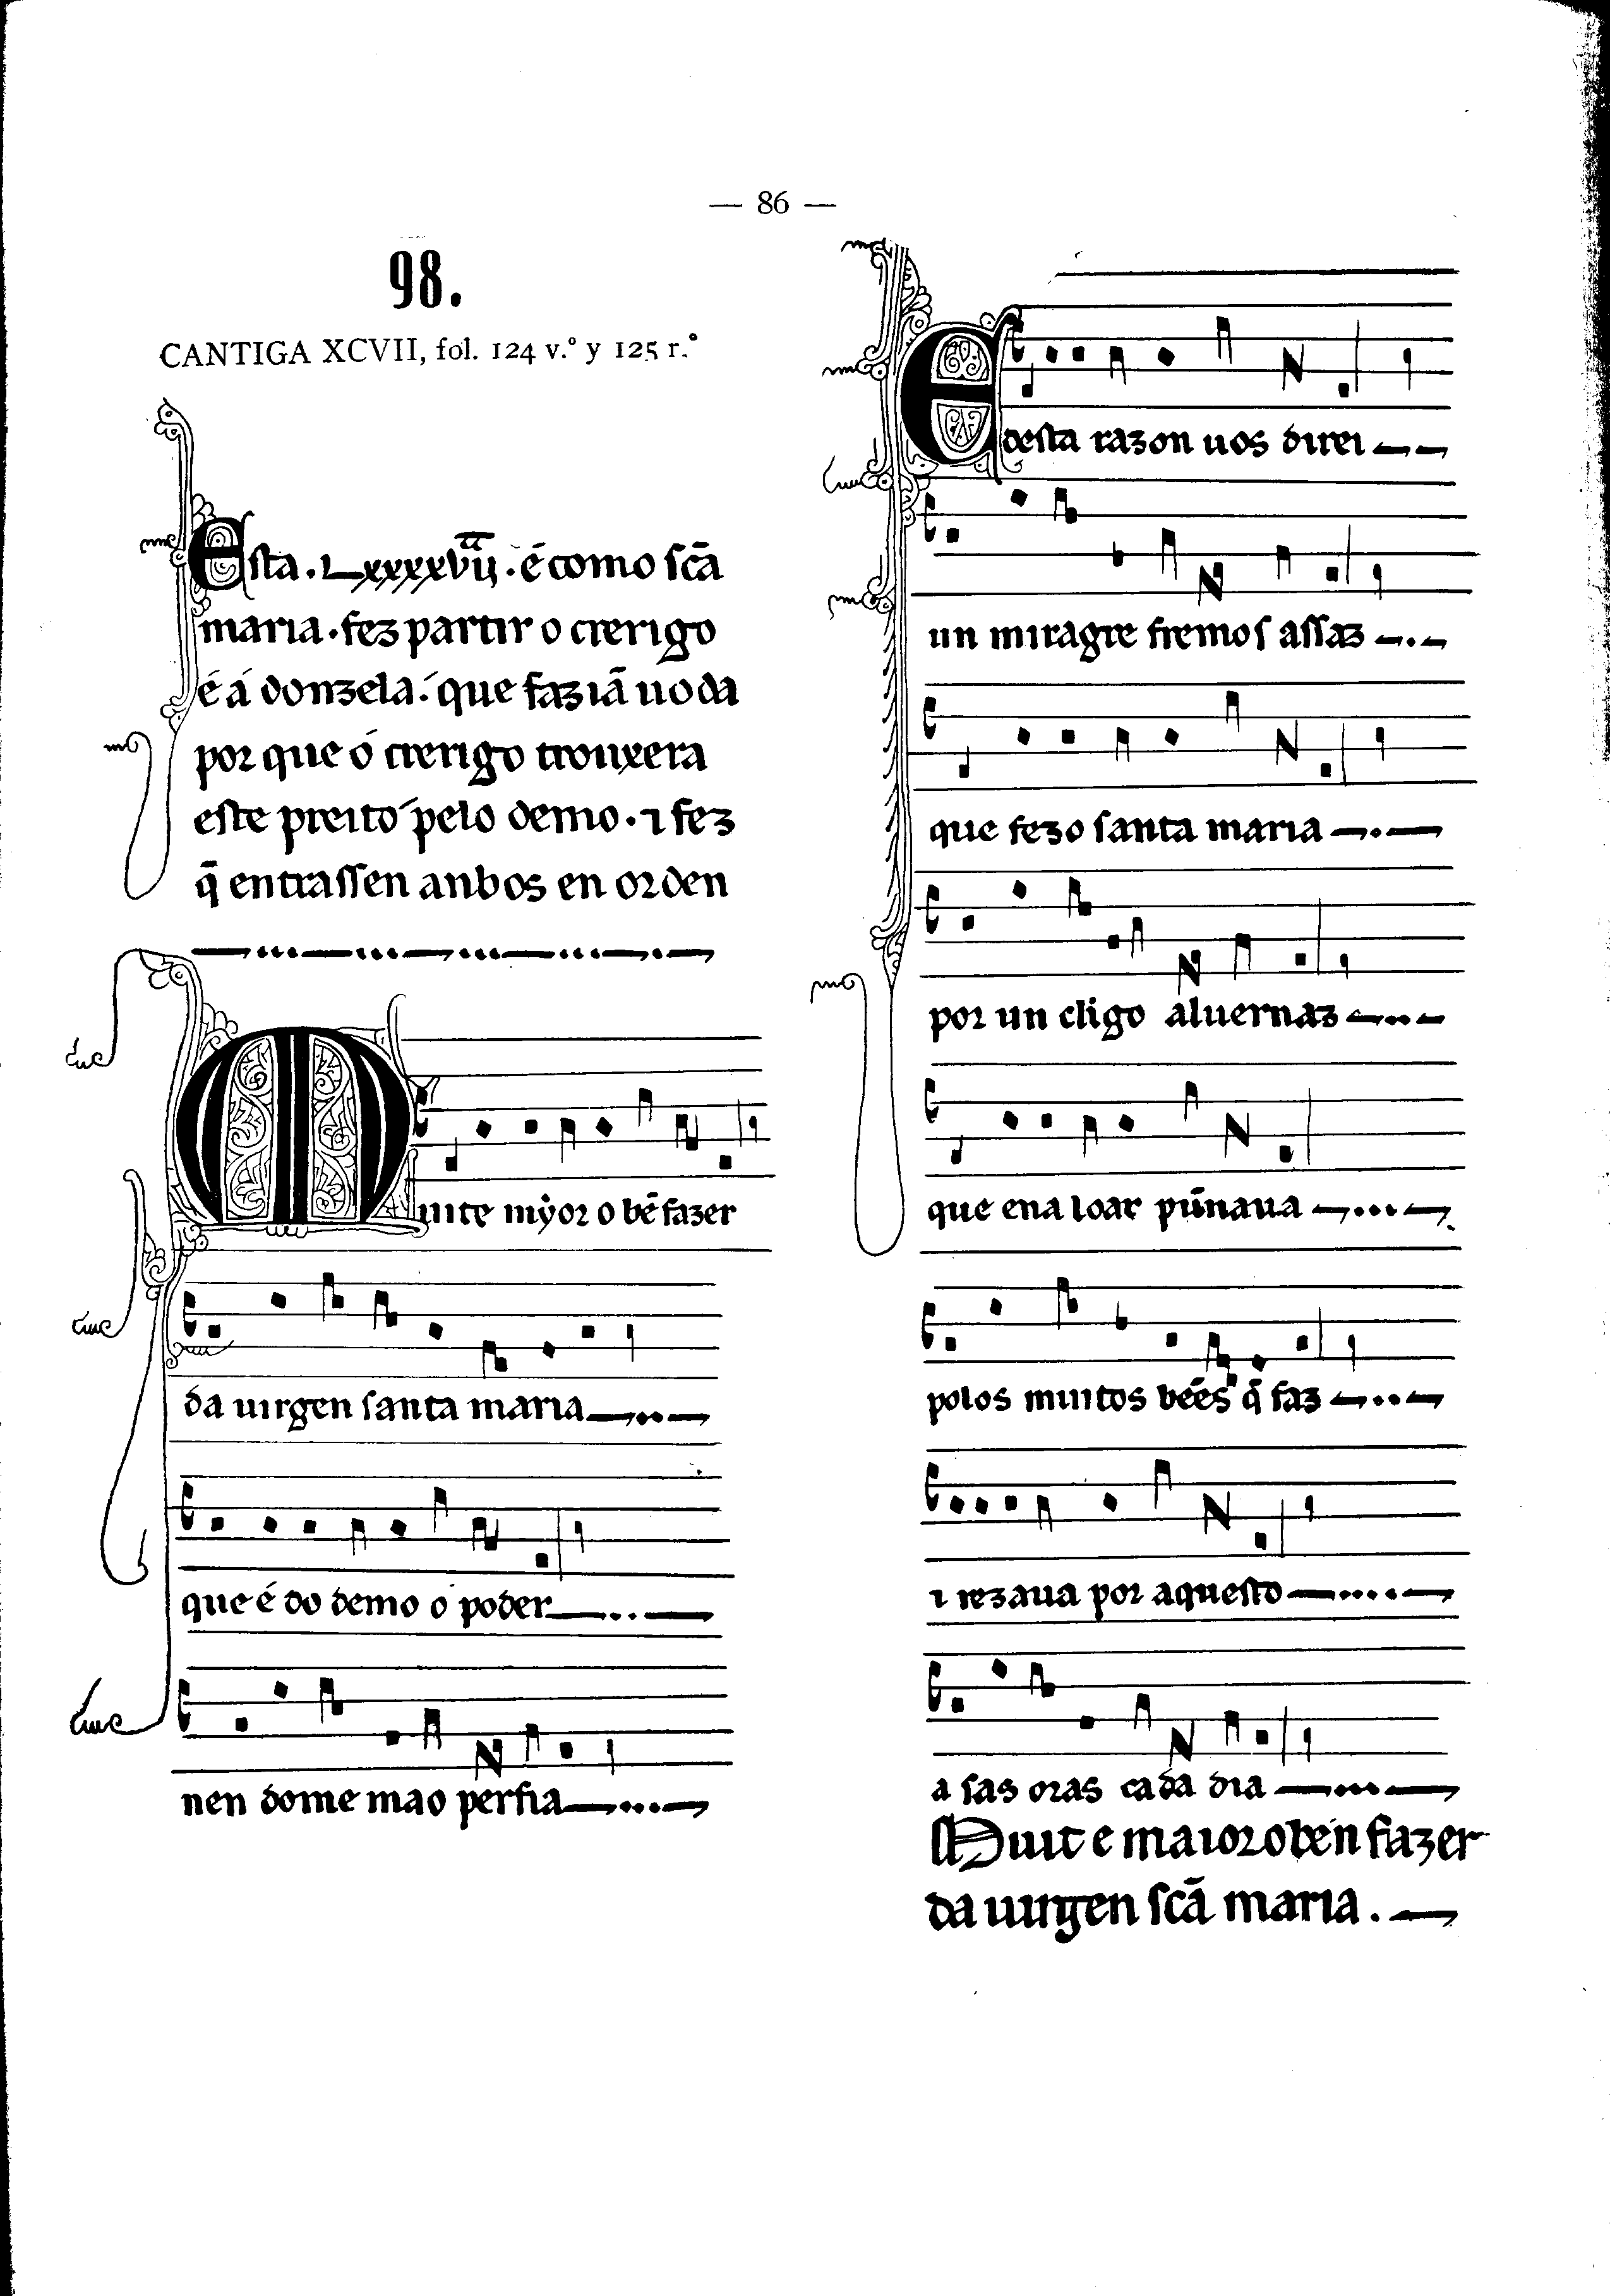 — 86 —
98.
CANTIGA XCVII, fol. 124 v.º y 125 r.º
Esta . Lxxxxvıȷ͞a͞ . é como ſcā
maria . fez partir o crerigo
é á donzela . que fazıā uoda
por que ó crerigo trouxera
eſte preito pelo demo . ⁊ fez
q̄ entraſſen anbos en orden
Muite mỹor o bē fazer
da uirgen ſanta maria
que é do demo o poder
nen dome mao perfia
E deſta razon uos direi
un miragre fremoſ aſſaz
que fezo ſanta maria
por un cligo aluernaz
que ena loar pūnaua
polos muitos bēes q̄ faz
⁊ rezaua por aqueſto
a ſas oras cada dia
Muit e maior o ben fazer
da uirgen ſcā maria .